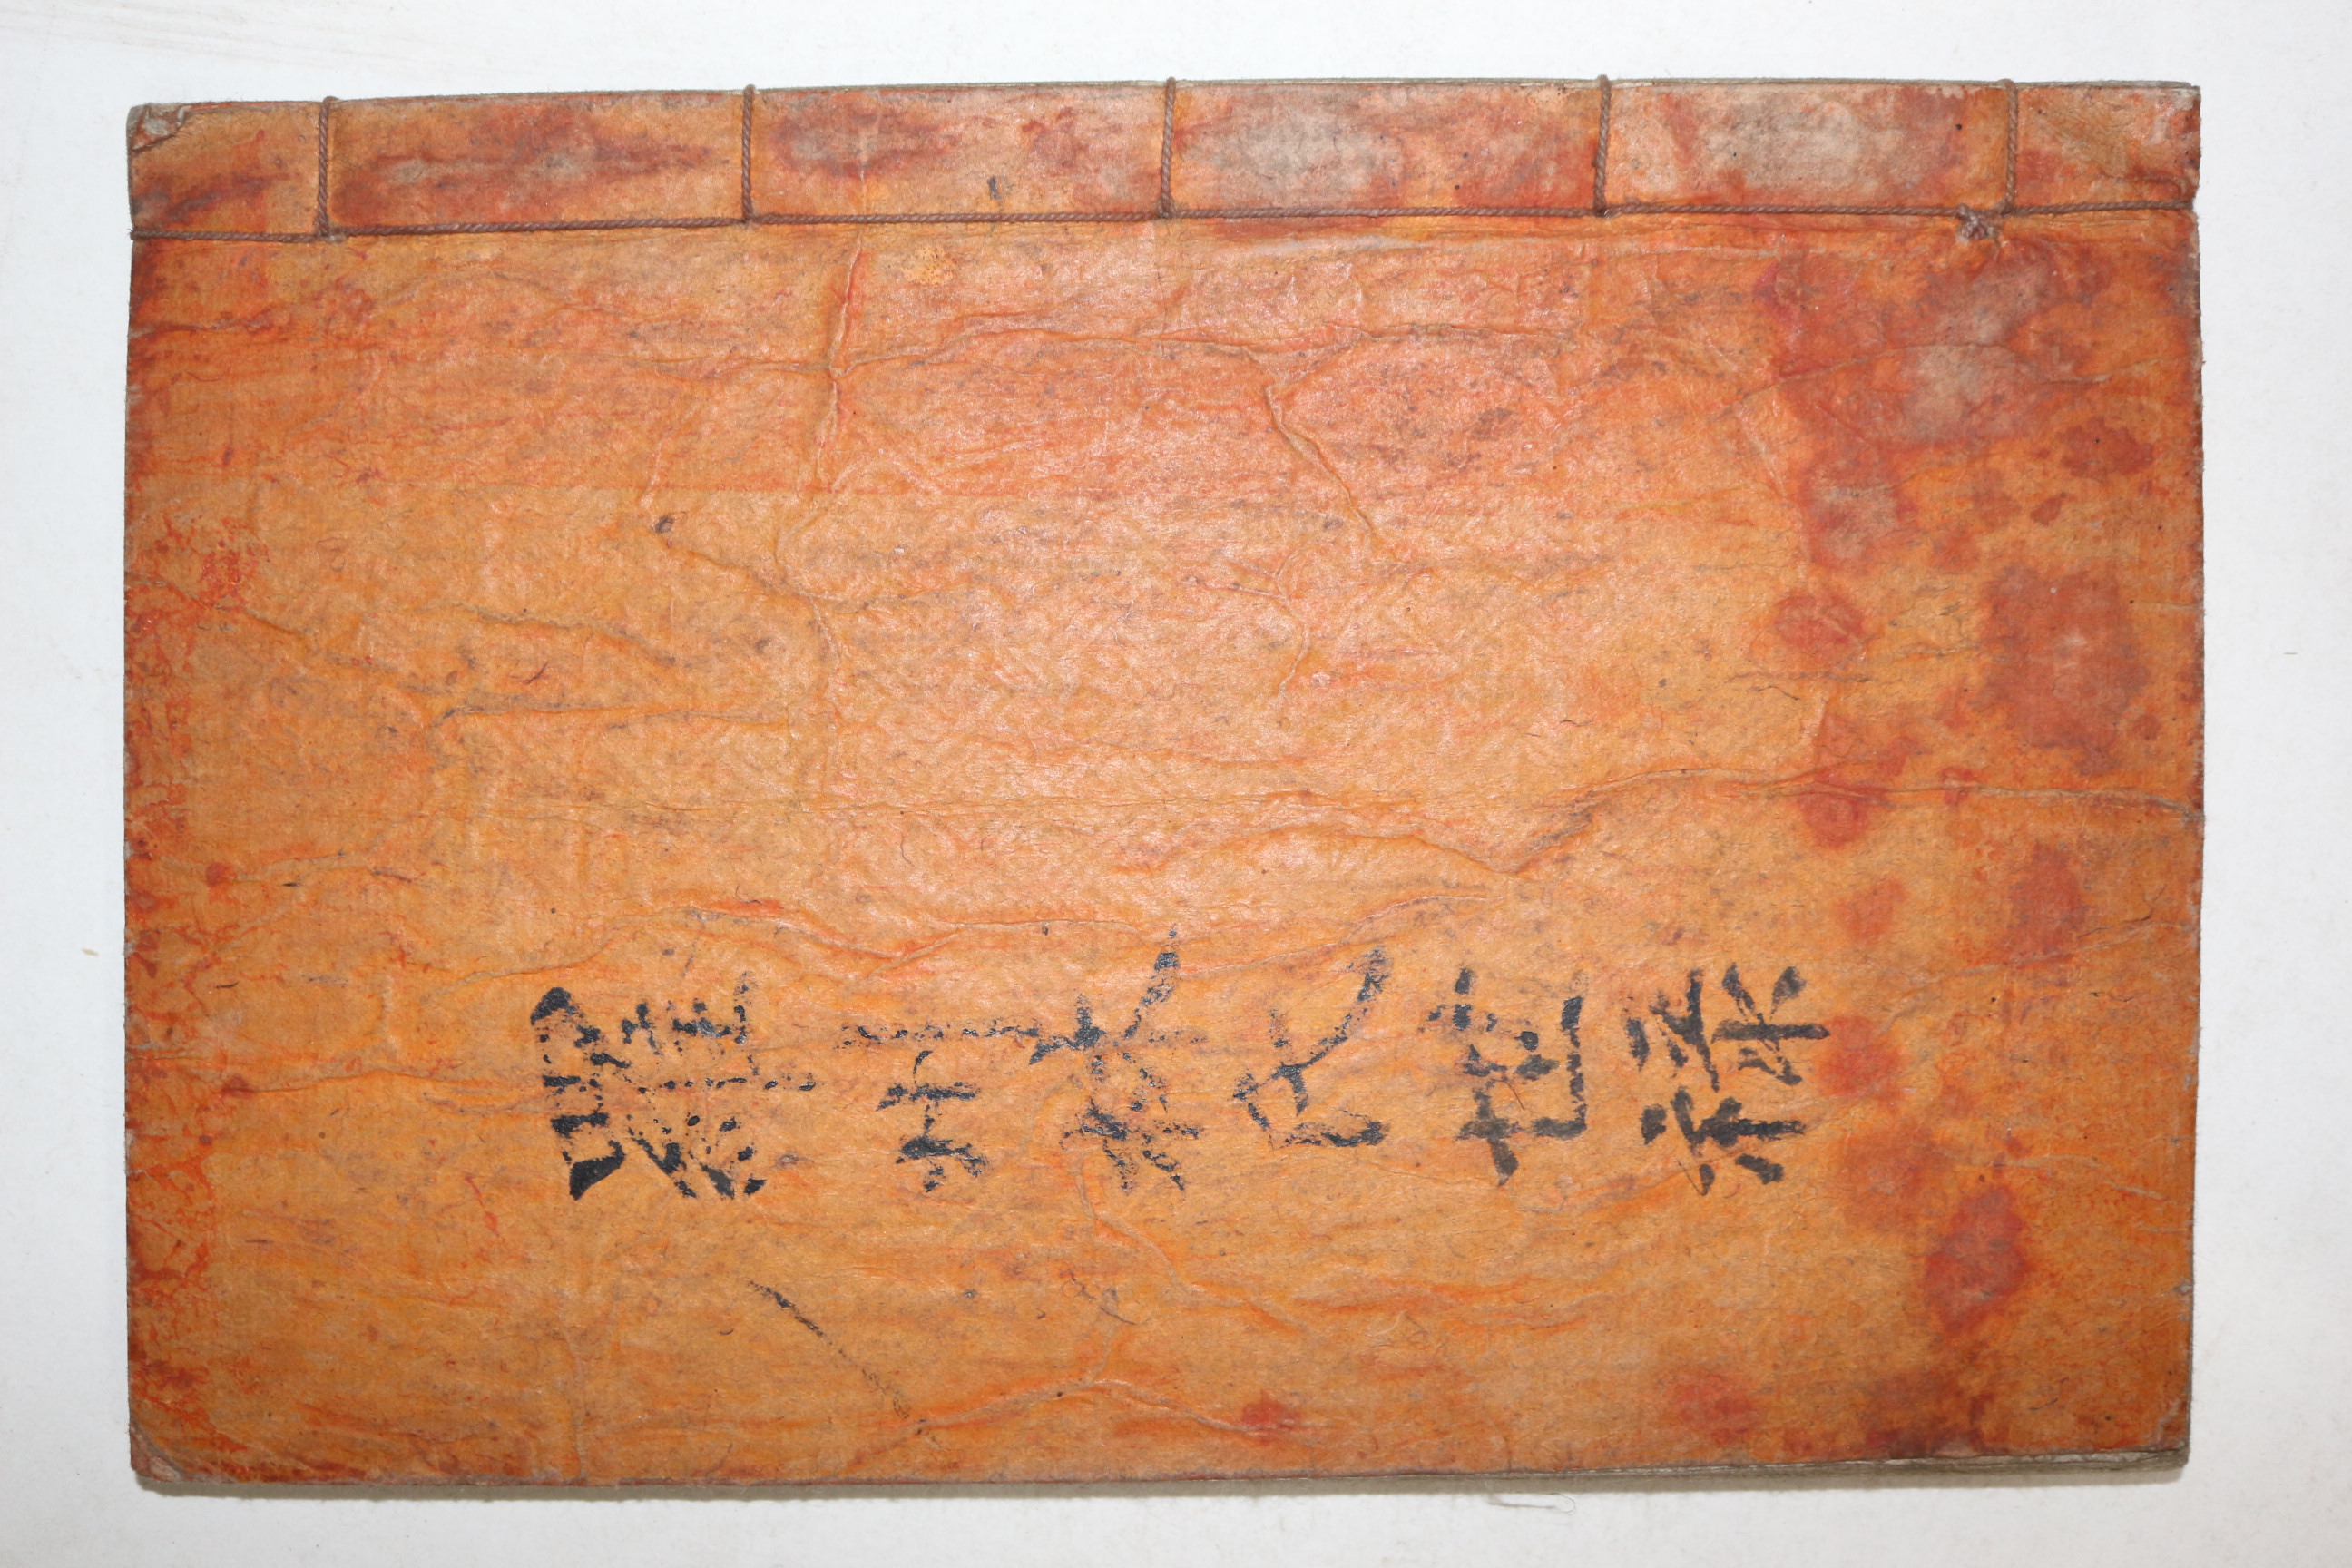 羅州林氏世祿